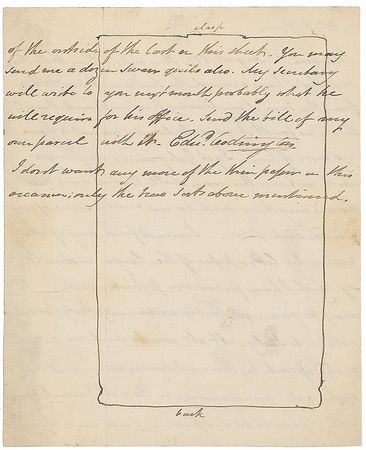 clasp
of the outside of the last on this sheet. You may
send me a dozen Swan quils also. My Secretary
will write to you next month probably what he
will require for his office. Send the bill of my
own parcel with it. Edwd.
I don't want any more of the thin paper on this
occasion; only the two sorts above mentioned.
back